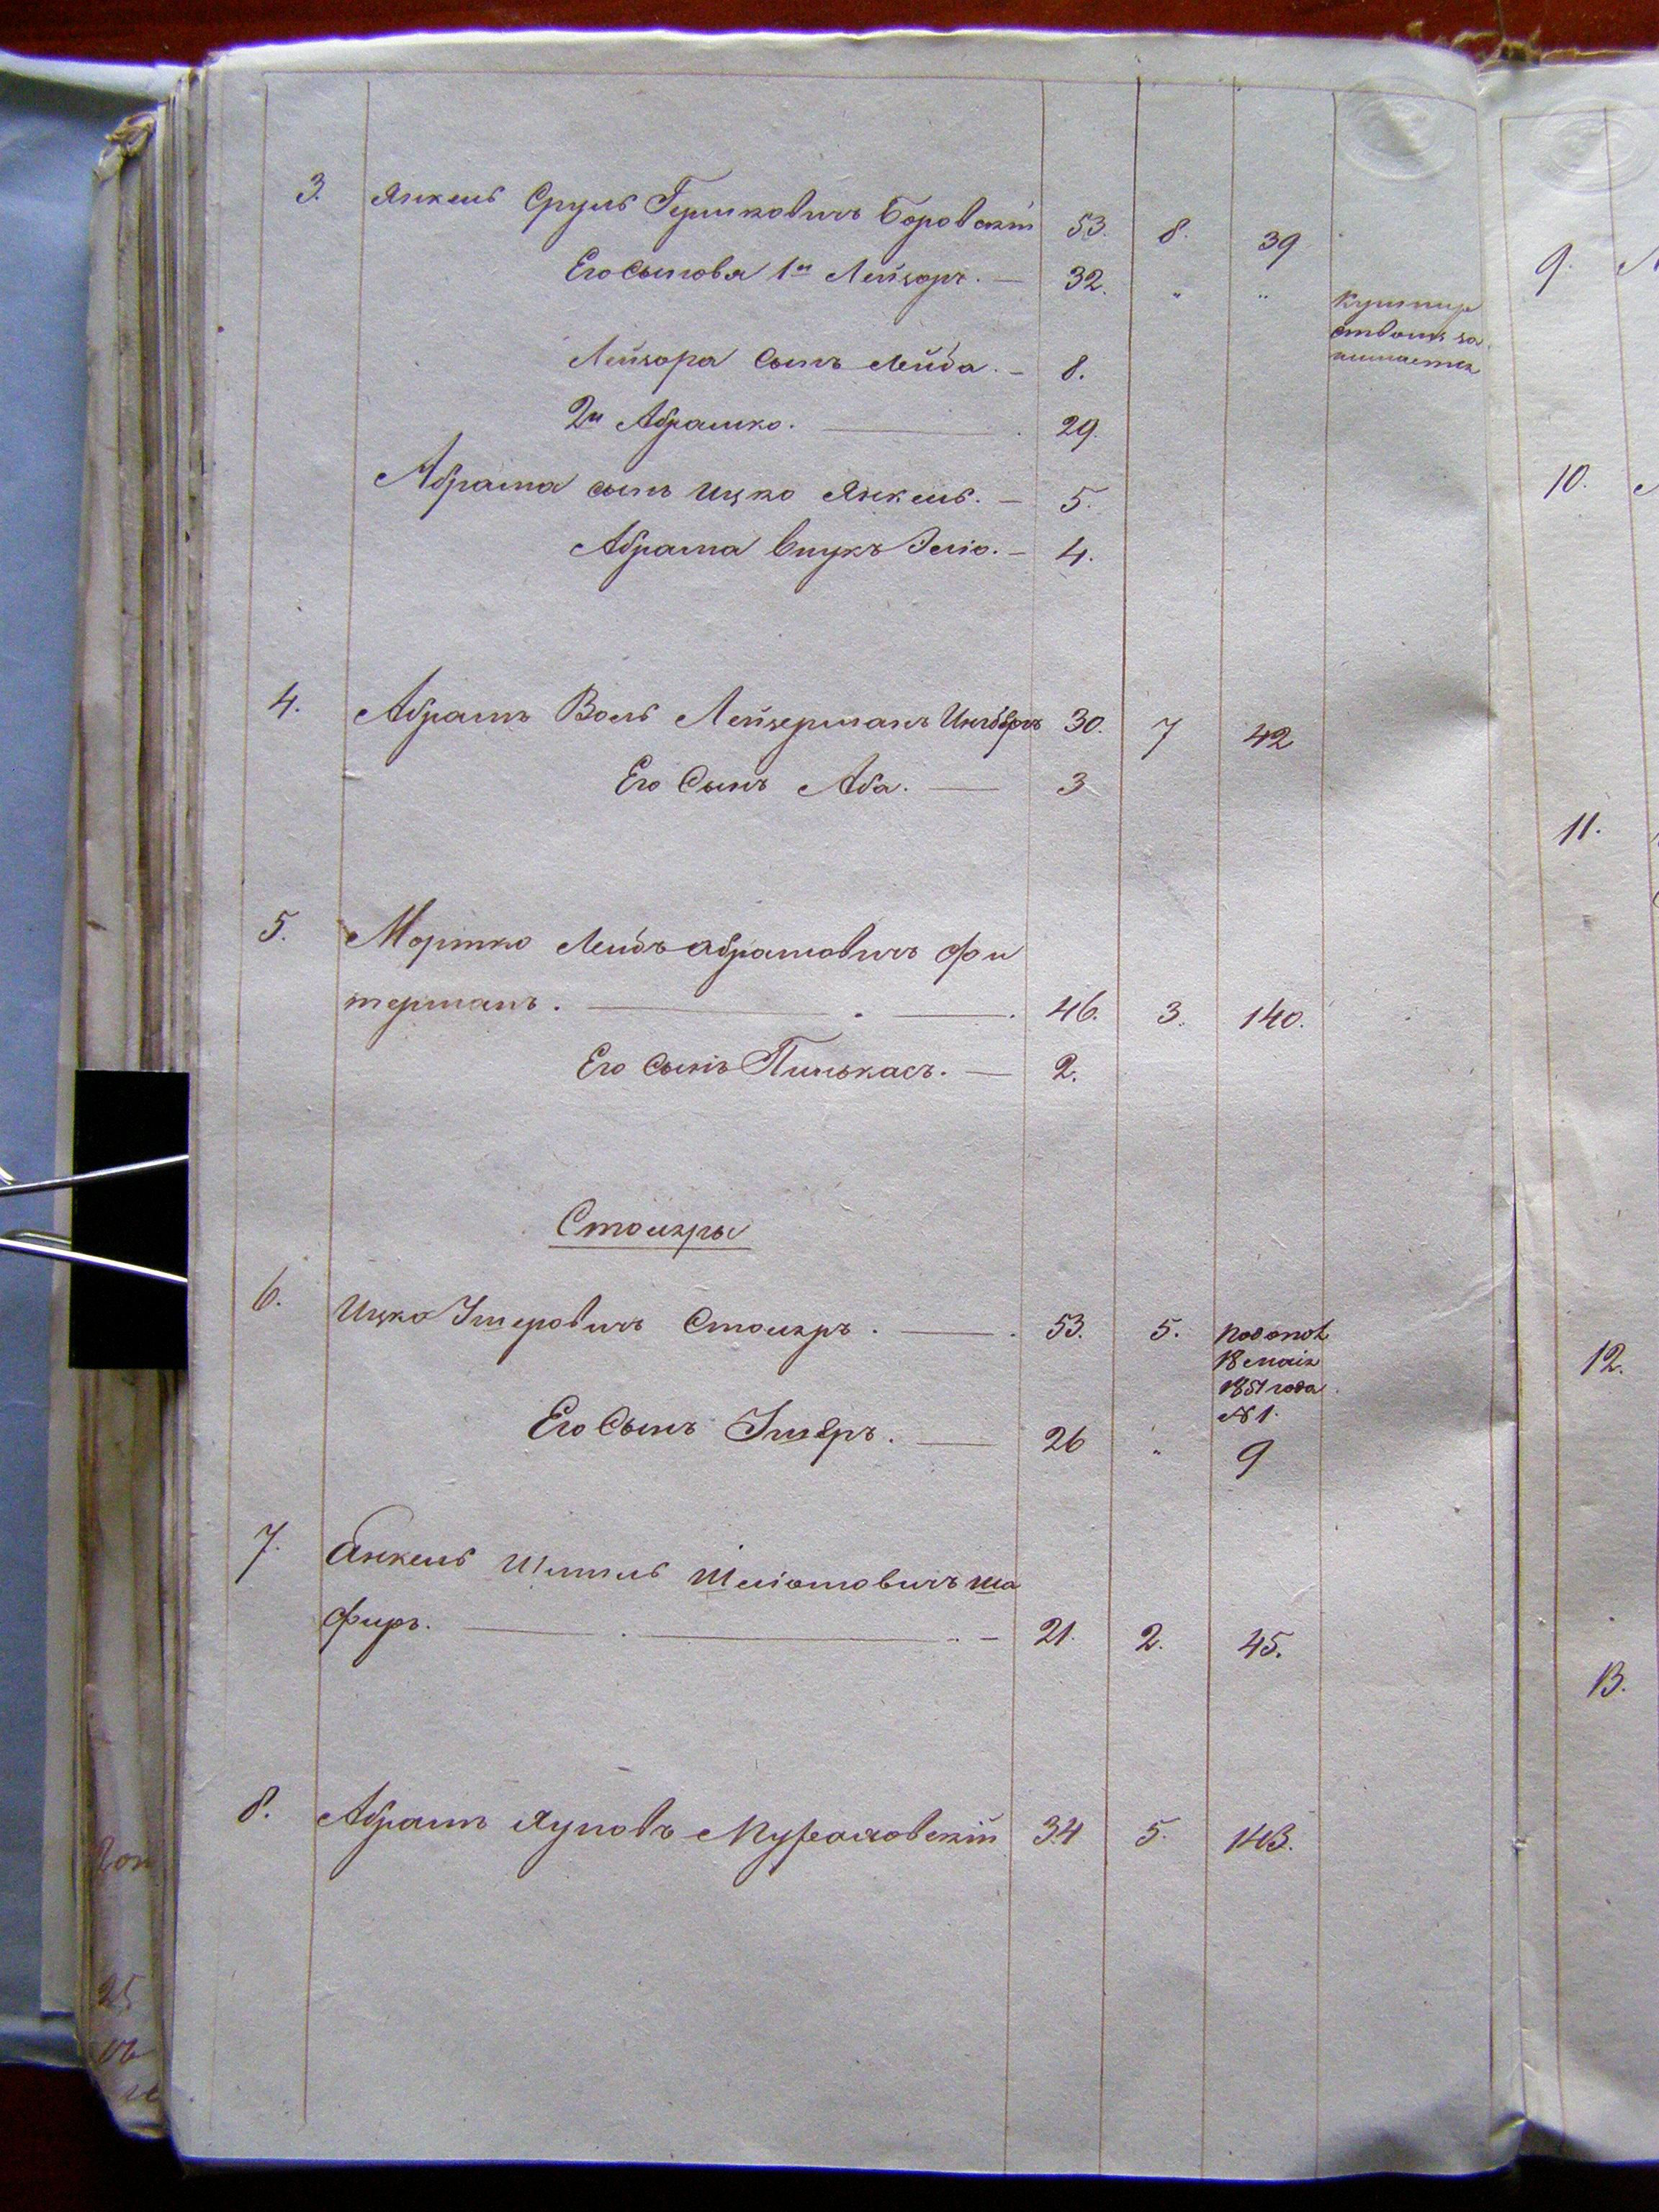 3. Янкель Сруль Гершковичъ Боровскій 53. 8. 39
Его сыновья 1й Лейзоръ. — 32. " "
Кушнир
ствомъ за
нимается
Лейзора Сынъ Лейба. — 8.
2й Абрашко. — 29.
Абрама сынъ Ицко Янкель. — 5.
Абрама внукъ Эліо. — 4.
4. АбрамъВоль Лейзерманъ 30. 7 42
Его Сынъ Аба. — 3
5. Мортко Лейбъ Абрамовичъ Фи
терманъ. — . — . 46. 3. 140.
Его Сынъ Пинькасъ. — 2.
Столяры
6. Ицко Умеровичъ Столяръ. — . 53. 5.
18 маія
1851 года
№ 1.
Его Сынъ Умеръ. — 26 " 9
7. Янкель Шмиль Шліомовичъ Ша
фиръ. — . — . — 21. 2. 45.
8. Абрамъ 34 5. 143.
9.
10.
11.
12.
13.